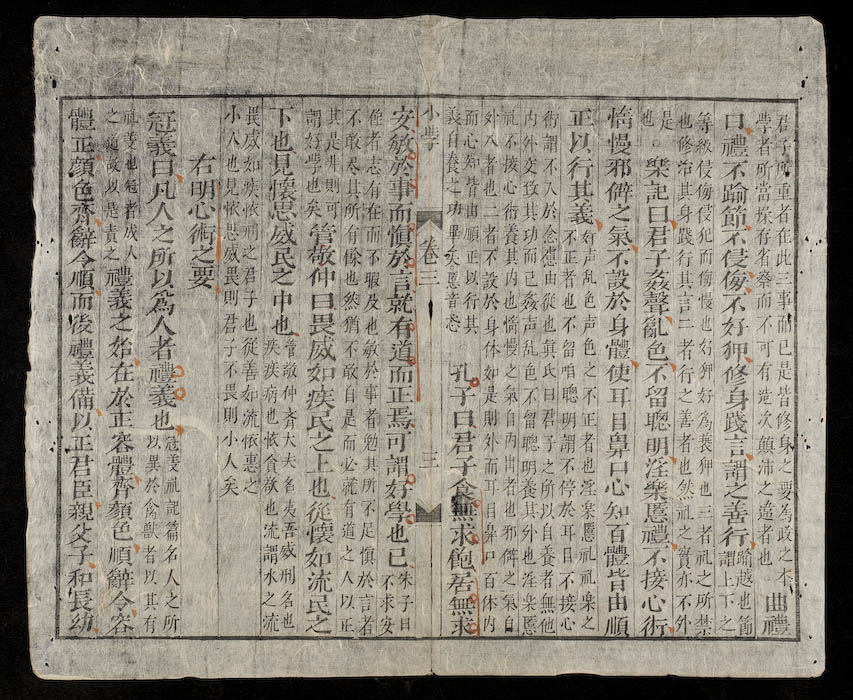 君子所重者在此三事而已是皆修身之要為政之本
學者所當操存省察而不可有造次顛沛之違者也
曲禮
曰禮不踰節不侵侮不好狎修身踐言謂之善行
踰越也節
謂上下之
等級侵侮侵犯而侮慢也好狎好為褻狎也三者礼之所禁
也修治其身踐行其言二者行之善者也然礼之實亦不外
是
也
樂記曰君子姦聲亂色不留聰明淫樂慝禮不接心術
惰慢邪僻之氣不設於身體使耳目鼻口心知百體皆由順
正以行其義
奸声乱色声色之不正者也淫楽慝礼礼楽之
不正者也不留聰明謂不停於耳目不接心
術謂不入於念慮由從也真氏曰君子之所以自養者無他
内外交致其功而已姦声乱色不留聰明養其外也淫楽慝
礼不接心術養其内也惰慢之氣自内出者也邪僻之氣自
外入者也二者不設於身体如是則外而耳目鼻口百体内
而心知皆由順正以行其
義自養之功畢矣慝音忒
孔子曰君子食無求飽居無求
小學 卷三 三
安敏於事而慎於言就有道而正焉可謂好學也已
朱子曰
不求安
者志有在而不暇及也敏於事者勉其所不足慎於言者
不敢尽其所有餘也然猶不敢自是而必就有道之人以正
其是非則可
謂好學也矣
管敬仲曰畏威如疾民之上也從懷如流民之
下也見懷思威民之中也
管敬仲齐大夫名夷吾威刑名也
疾疾病也懷貪欲也流謂水之流
畏威如疾依礼之君子也從善如流依惠之
小人也見懷思威畏則君子不畏則小人矣
右明心術之要
冠義曰凡人之所以為人者禮義也
冠義礼記篇名人之所
以異於禽獸者以其有
礼義也冠者成人
之道故以是責之
禮義之始在於正容體齊顏色順辭令容
體正顏色齊辭令順而後禮義備以正君臣親父子和長幼